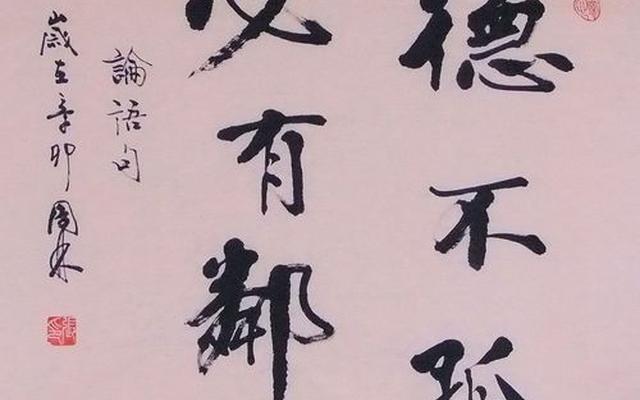 德不孤
必有鄰
論語句
歲在辛卯